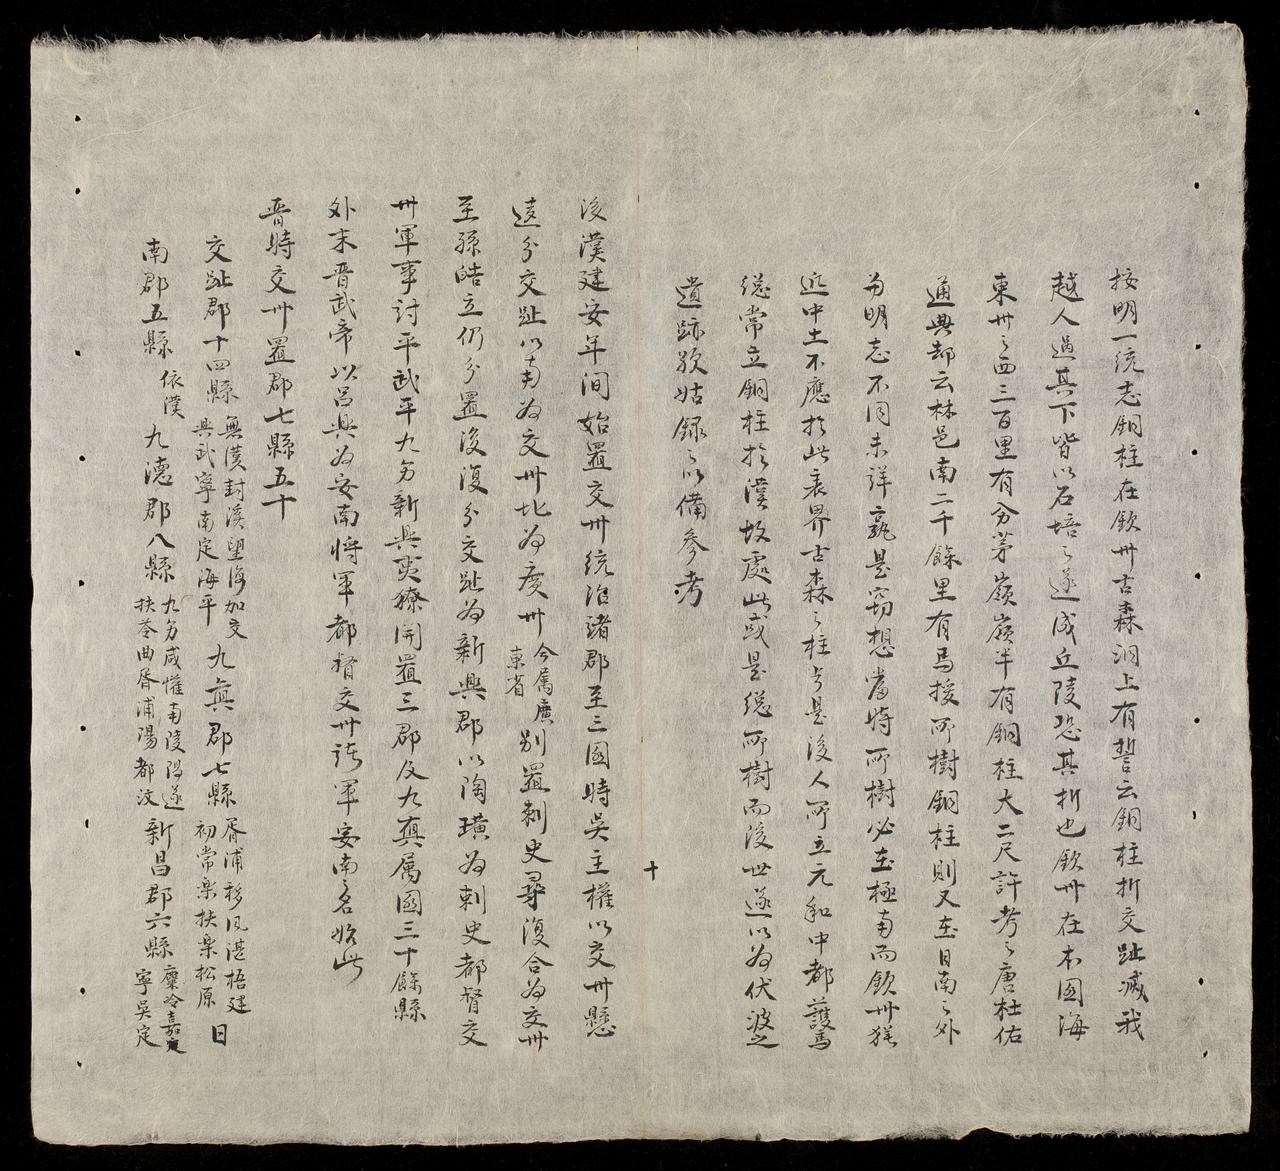 按明一統志銅柱在欽卅古森洞上有誓云銅柱折交趾滅我
越人過其下皆以石培之遂成丘陵恐其折也欽卅在本國海
東卅之西三百里有分茅嶺嶺半有銅柱大二尺許考之唐杜佑
通典却云林邑南二千餘里有馬援所樹銅柱則又在日南之外
与明志不同未詳孰是窃想當時所樹必在極南而欽卅猶
近中土不應於此表界古森之柱或是後人所立元和中都護馬
總常立銅柱於漢故處此或是總所樹而後世遂以為伏波之
遺跡歟姑録之以備參考
十
後漢建安年间始置交卅統治諸郡至三國時吳主權以交卅懸
遠分交趾以南為交卅北為廣卅今属廣東省別置刺史尋復合為交卅
至孫皓立仍分置後復分交趾為新興郡以陶璜為刺史都督交
卅軍事討平武平九真新興夷獠開置三郡及九真属國三十餘縣
外末晋武帝以呂興為安南將軍都督交卅諸軍安南之名始此
晋時交卅置郡七縣五十
交趾郡十四縣無漢封溪望海加交興武寧南定海平九真郡七縣胥浦移風湛梧建初常楽扶楽松原日
南郡五縣依漢九德郡八縣九真咸懽南陵陽遂扶苓曲胥浦陽都汶新昌郡六縣麋冷嘉寧吳定